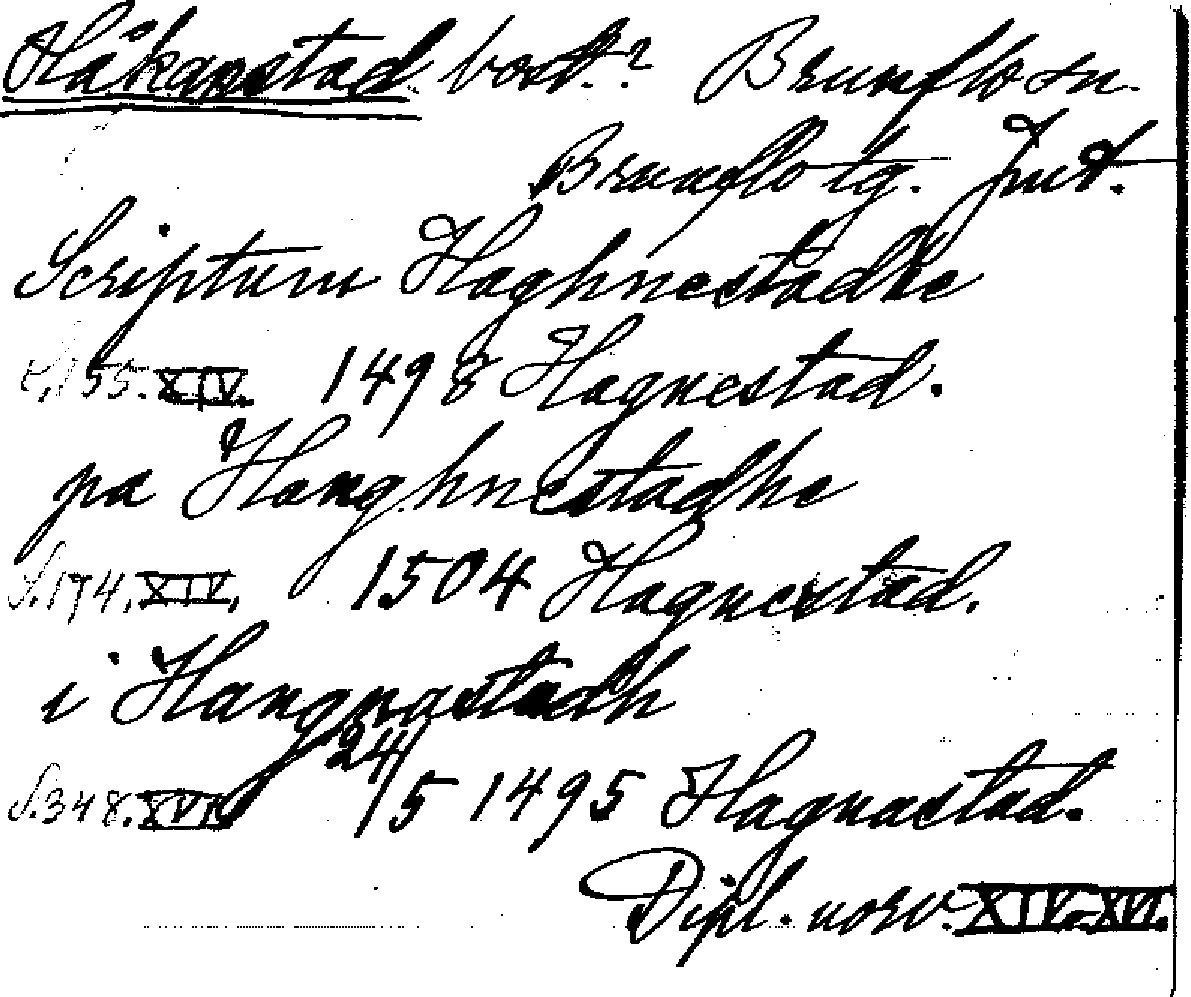 Håkanstad bost.? Brunflo sn.
Brunflo tg. Jmt.
Scriptum Haghnestadhe
S.155. XIV. 1498 Hagnestad.
pa Hanghnestadhe
S.174. XIV. 1504 Hagnestad.
i Hangnastadh
S.348. XVI. 24/5 1495 Hagnastad.
Dipl. norv. XIV. XVI.